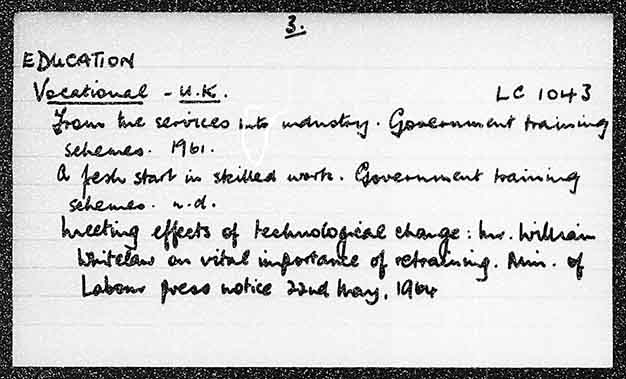 3.
EDUCATION
Vocational - U.K. LC 1043
From the services into industry. Government training
schemes. 1961.
A fresh start in skilled work. Government training
schemes. n.d.
Meeting effects of technological change: Mr. William
Whitelaw on vital importance of retraining. Min. of
Labour press notice 22nd May, 1964